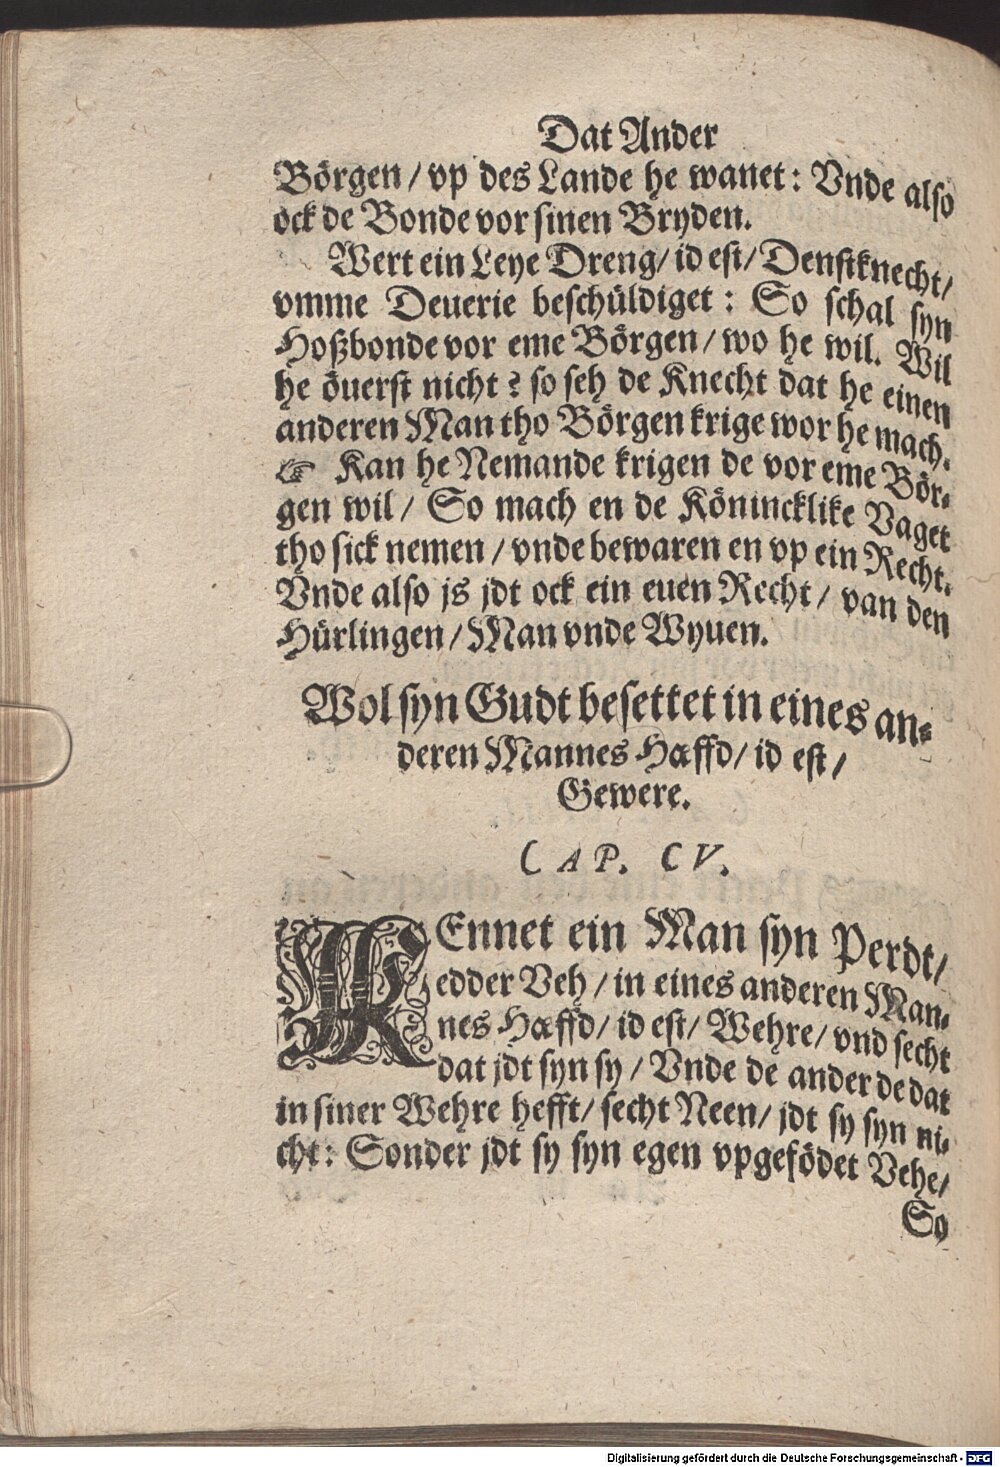 Dat Ander
Börgen / vp des Lande he wanet : Vnde also
ock de Bonde vor sinen Bryden.
Wert ein Leye Dreng / id est / Denstknecht /
vmme Deuerie beschüldiget : So schal syn
Hoßbonde vor eme Börgen / wo he wil. Wil
he öuerst nicht ? so seh de Knecht dat he einen
anderen Man tho Börgen krige wor he mach.
☞ Kan he Nemande krigen de vor eme Bör-
gen wil / So mach en de Könincklike Vaget
tho sick nemen / vnde bewaren en vp ein Recht.
Vnde also js jdt ock ein euen Recht / van den
Hürlingen / Man vnde Wyuen.
Wol syn Gudt besettet in eines an-
deren Mannes Hæffd / id est /
Gewere.
CAP. CV.
KEnnet ein Man syn Perdt /
edder Veh / in eines anderen Man-
nes Hæffd / id est / Wehre / vnd secht
dat jdt syn sy / Vnde de ander de dat
in siner Wehre hefft / secht Neen / jdt sy syn ni-
cht : Sonder jdt sy syn egen vpgefödet Vehe /
So
Digitalisierung gefördert durch die Deutsche Forschungsgemeinschaft - DFG